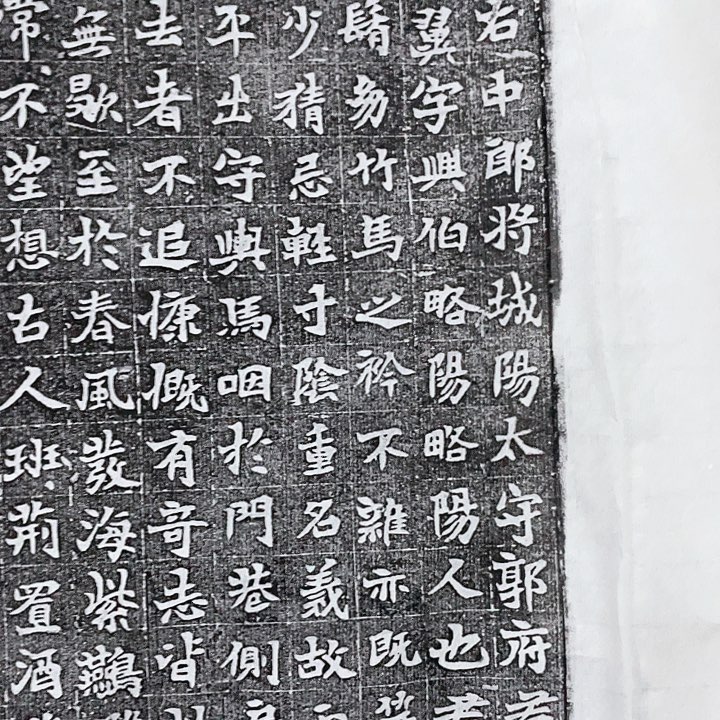 右中郎將城陽太守郭府君
翼字興伯略陽略陽人也君
竹馬之衿不雜亦既
少猜忌輕寸陰重名義故
平出守輿馬咽於門巷側
去者不追慷慨有奇志皆
無歇至於春風發海紫鷰
常不望想古人班荊置酒